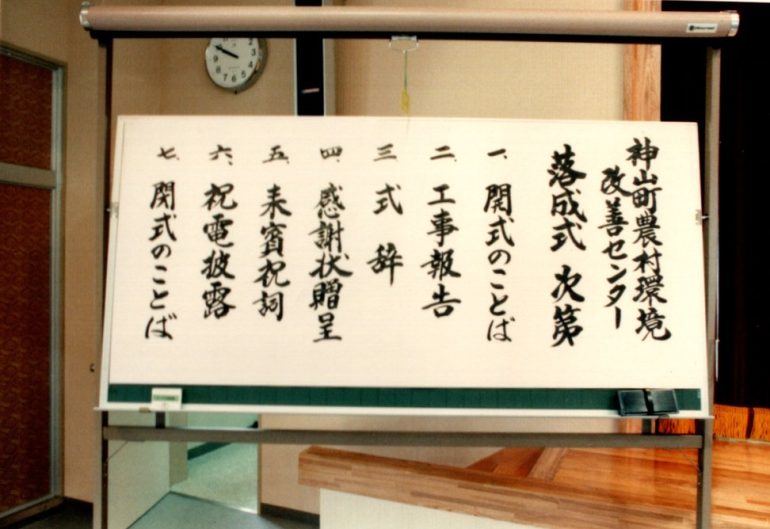 神山町農村環境
改善センター
落成式 次第
一、開式のことば
二、工事報告
三、式辞
四、感謝状贈呈
五、来賓祝詞
六、祝電披露
七、閉式のことば